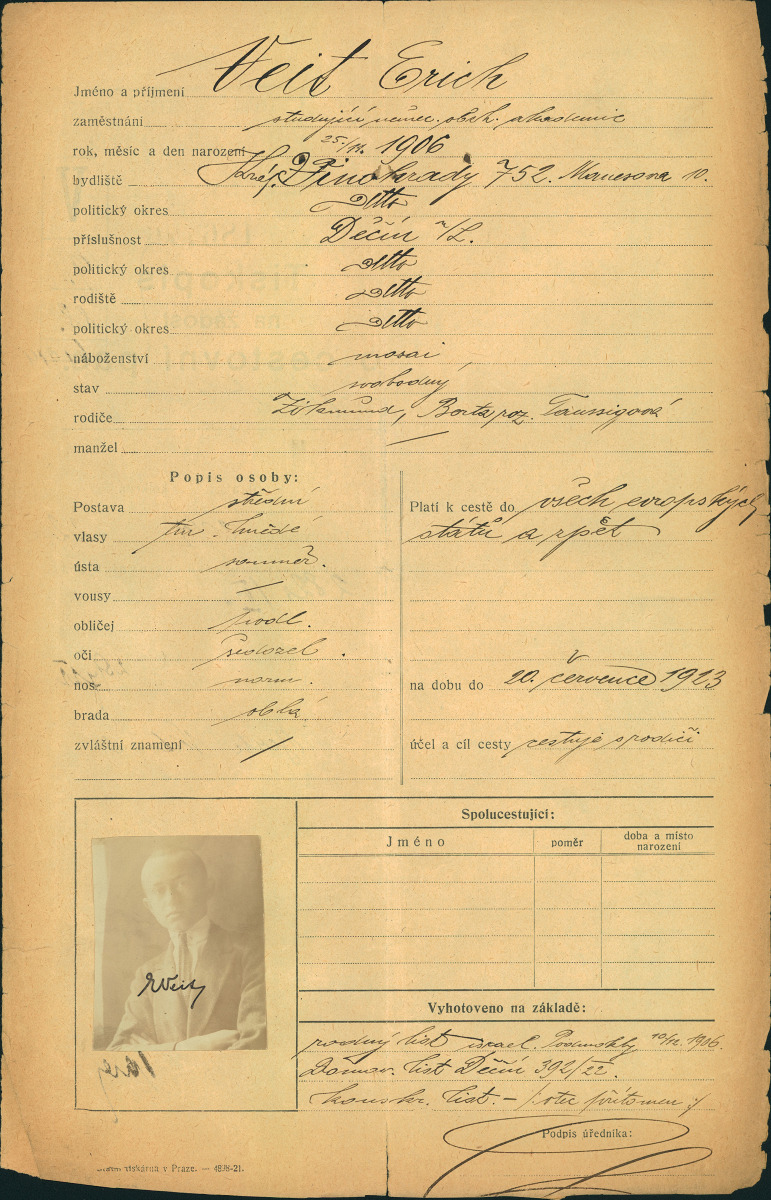 Jméno a příjmení Veit Erich
zaměstnání studující němec. obch. akademie
rok, měsíc a den narození 25./11. 1906
bydliště Král. Vinohrady 752. Manesova 10.
politický okres Ditto
příslušnost Děčín n/L.
politický okres Ditto
rodiště Ditto
politický okres Ditto
náboženství mosai
stav svobodný
rodiče Zikmund, Berta roz. Taussigová
manžel —
Popis osoby:
Postava střední
vlasy tm. hnědé
ústa souměř.
vousy —
obličej podl.
oči šedozel.
nos norm.
brada oblá
zvláštní znamení /
Platí k cestě do všech evropských
států a zpět
na dobu do 20. července 1923
účel a cíl cesty cestuje s rodiči
EVeit
Spolucestující:
Jméno poměr doba a místo
narození
Vyhotoveno na základě:
rodný list israel. Podmokly 10/12. 1906.
Domov. list Děčín 392/22.
konskr. list. — /: otec přítomen :/
Podpis úředníka:
tiskárna v Praze. — 4878-21.